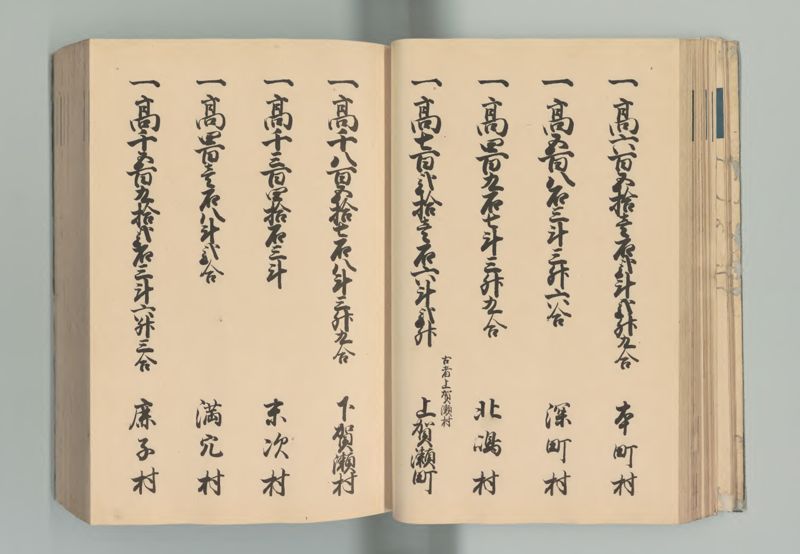 一高六百五拾壱石弐斗弐升九合 本町村
一高五百八石三斗三升六合 深町村
一高四百九石七斗三升九合 北嶋村
一高七百弐拾壱石六斗弐升 古者上賀瀬村 上賀瀬町
一高千八百五拾七石八斗三升九合 下賀瀬村
一高千三百四拾石三斗 末次村
一高四百壱石八斗弐合 満穴村
一高千五百九拾弐石三斗六升三合 廉子村